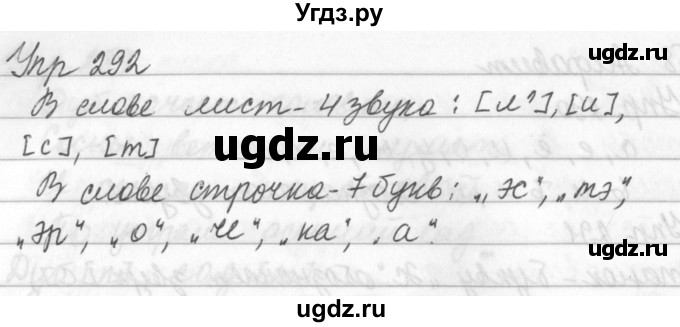 Угдз.ру
Упр 292
ugdz.ru
В слове лист - 4 звука: [л'], [и],
[с], [т]
ugdz.ru
В слове строчка - 7 букв: „эс“, „тэ“,
„эр“, „о“, „че“, „ка“, „а“.
ugdz.ru
ugdz.ru
ugdz.ru